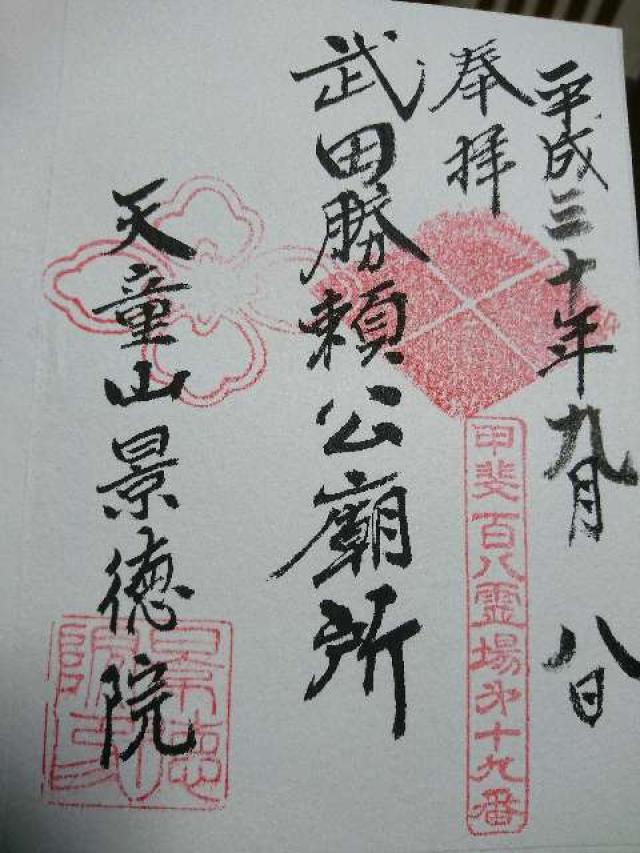 平成三十年九月八日
奉拝
甲斐百八霊場第十九番
武田勝頼公廟所
天童山景徳院
景徳院印